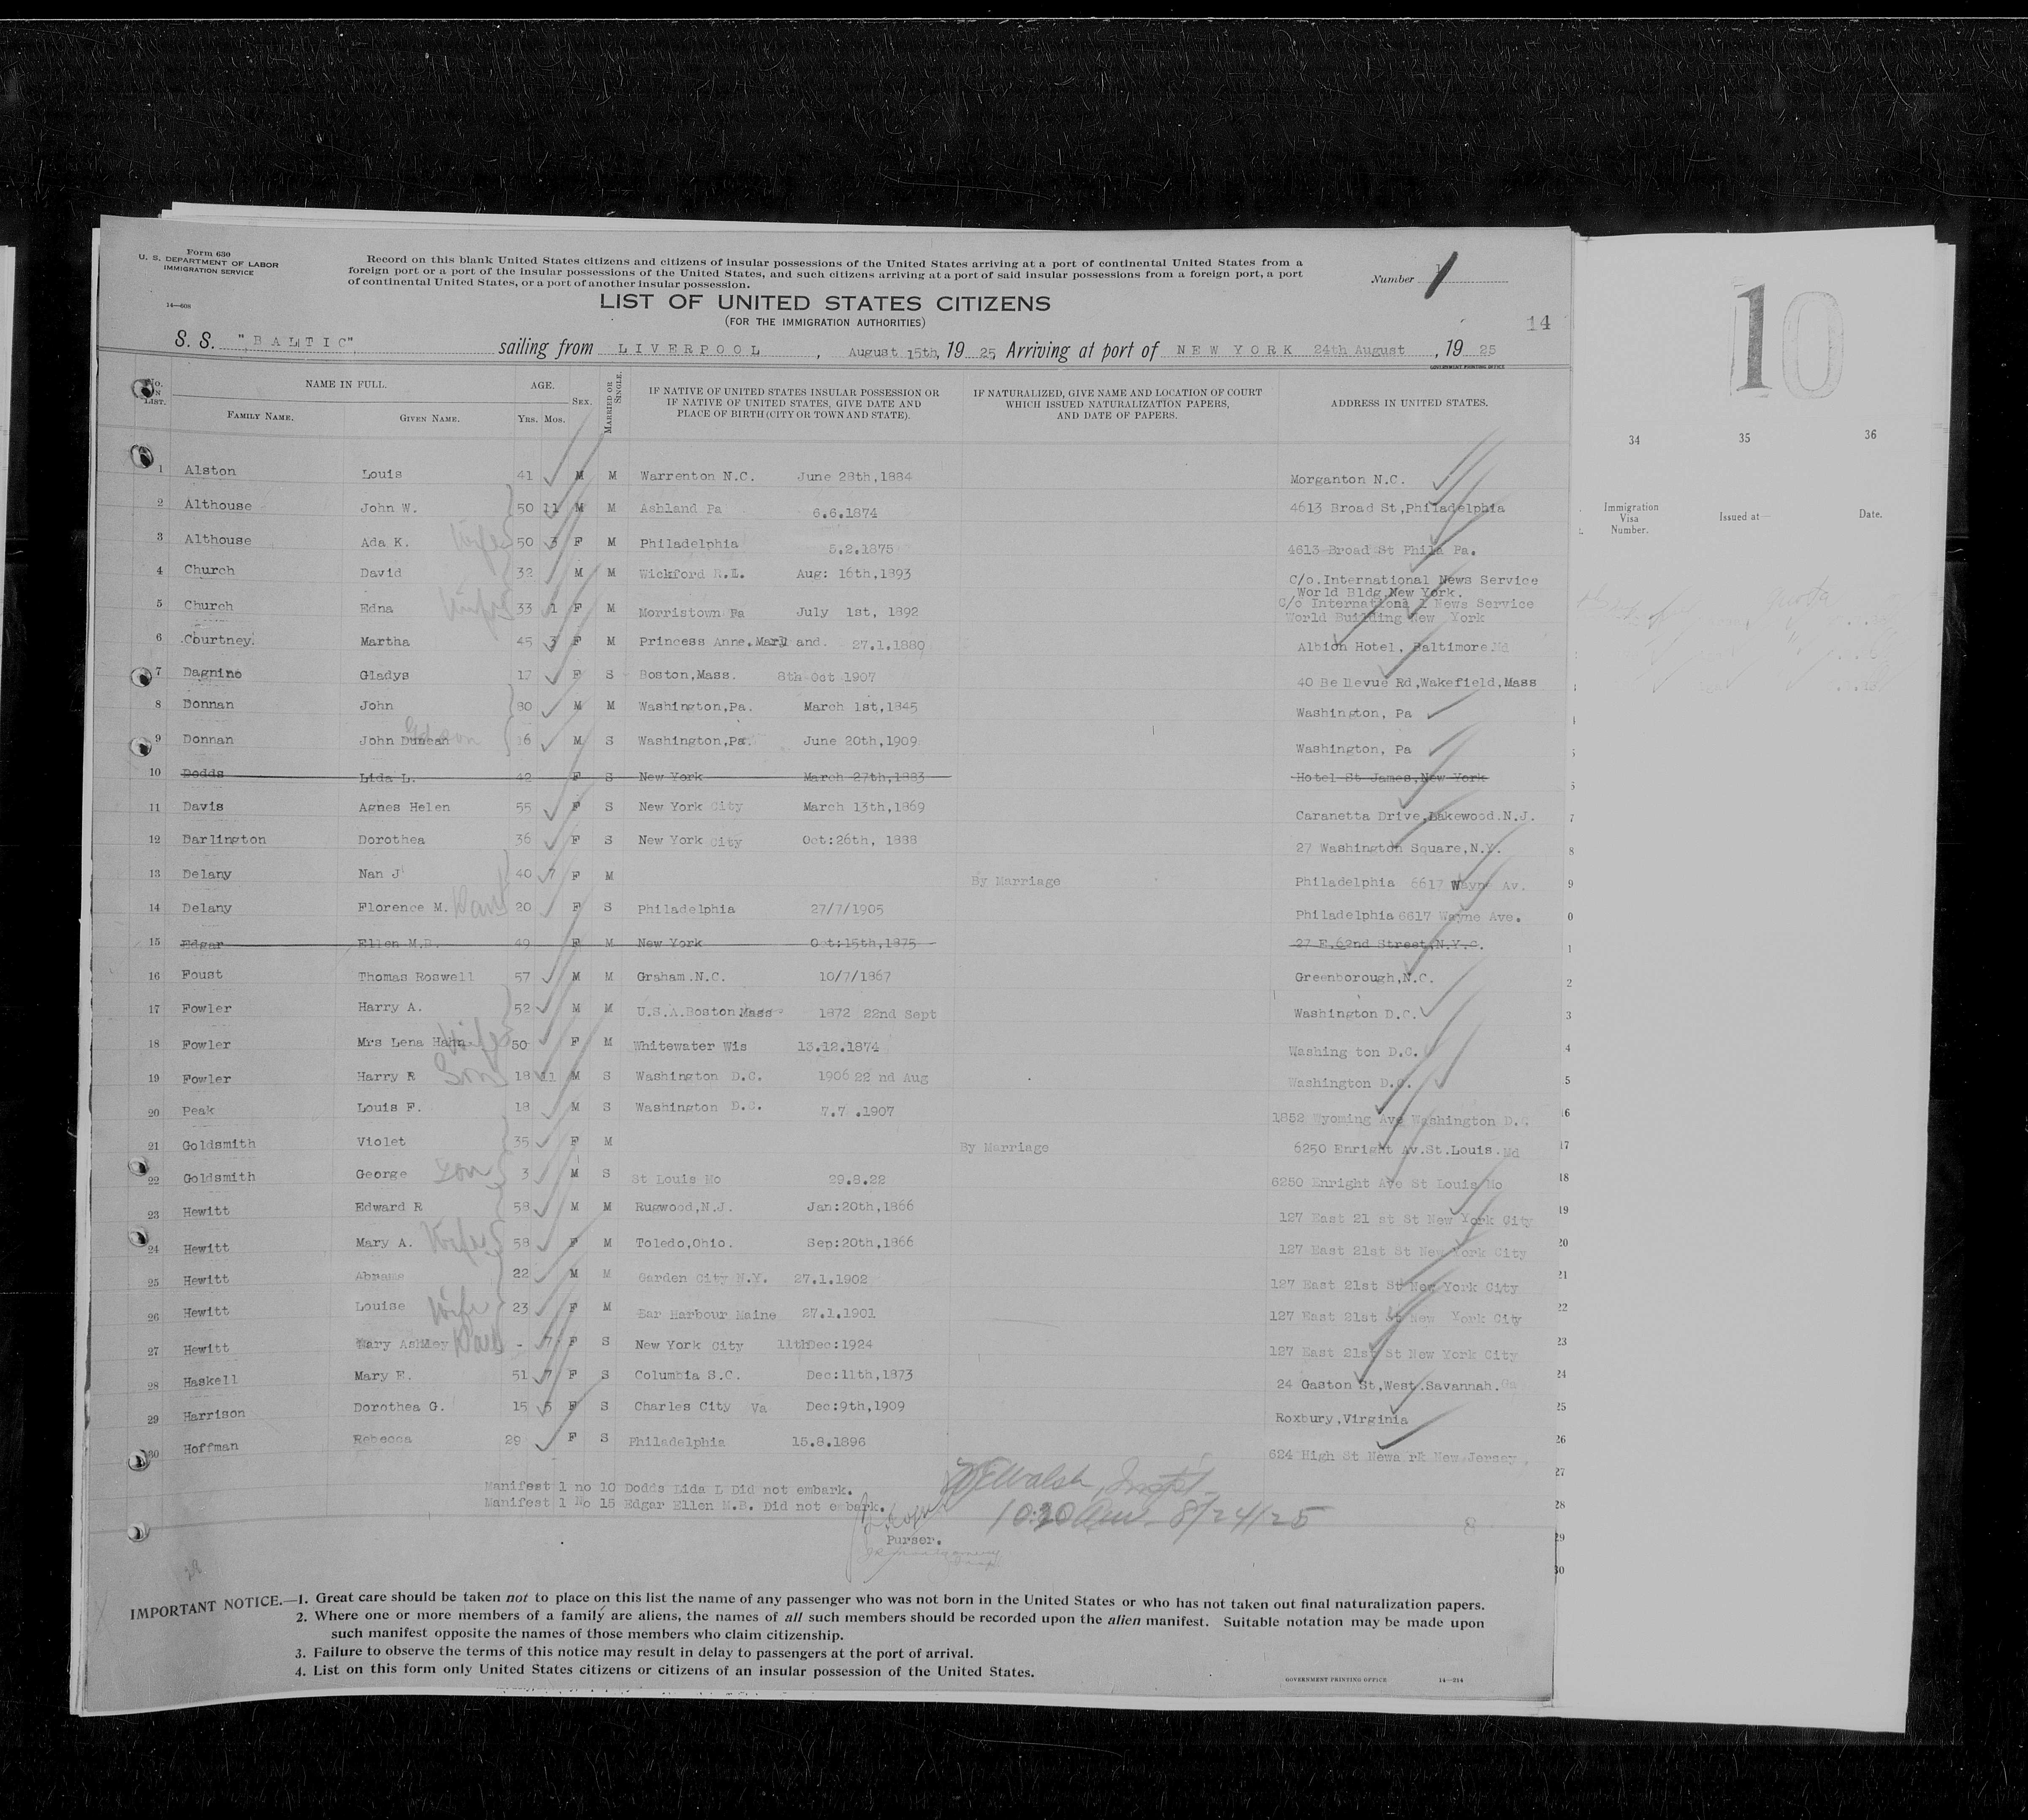 Form 630
U. S. DEPARTMENT OF LABOR
IMMIGRATION SERVICE
14—608
Record on this blank United States citizens and citizens of insular possessions of the United States arriving at a port of continental United States from a
foreign port or a port of the insular possessions of the United States, and such citizens arriving at a port of said insular possessions from a foreign port, a port
of continental United States, or a port of another insular possession.
Number 1
LIST OF UNITED STATES CITIZENS
(FOR THE IMMIGRATION AUTHORITIES)
14
S. S. "BALTIC" sailing from LIVERPOOL, August 15th, 1925, Arriving at port of NEW YORK 24th August, 1925
GOVERNMENT PRINTING OFFICE
No. ON LIST. NAME IN FULL. FAMILY NAME. GIVEN NAME. AGE. Yrs. Mos. SEX. MARRIED OR SINGLE. IF NATIVE OF UNITED STATES INSULAR POSSESSION OR IF NATIVE OF UNITED STATES, GIVE DATE AND PLACE OF BIRTH (CITY OR TOWN AND STATE). IF NATURALIZED, GIVE NAME AND LOCATION OF COURT WHICH ISSUED NATURALIZATION PAPERS, AND DATE OF PAPERS. ADDRESS IN UNITED STATES.
1 Alston Louis 41 M M Warrenton N.C. June 28th,1884 Morganton N.C.
2 Althouse John W. 50 11 M M Ashland Pa 6.6.1874 4613 Broad St,Philadelphia
3 Althouse Ada K. Wife 50 3 F M Philadelphia 5.2.1875 4613 Broad St Phila Pa.
4 Church David 32 M M Wickford R.I. Aug: 16th,1893 C/o.International News Service
World Bldg New York.
5 Church Edna Wife 33 1 F M Morristown Pa July 1st, 1892 C/o International News Service
World Building New York
6 Courtney. Martha 45 3 F M Princess Anne.Maryland. 27.1.1880 Albion Hotel, Baltimore Md
7 Dagnino Gladys 17 F S Boston,Mass. 8th Oct 1907 40 Bellevue Rd,Wakefield,Mass
8 Donnan John 80 M M Washington,Pa. March 1st,1845 Washington, Pa
9 Donnan John Duncan 16 M S Washington,Pa. June 20th,1909 Washington, Pa
10 Dodds Lida L. 42 F S New York March 27th,1883 Hotel St James,New York
11 Davis Agnes Helen 55 F S New York City March 13th,1869 Caranetta Drive,Lakewood.N.J.
12 Darlington Dorothea 36 F S New York City Oct:26th, 1888 27 Washington Square,N.Y.
13 Delany Nan J 40 7 F M By Marriage Philadelphia 6617 Wayne Av.
14 Delany Florence M. Daut 20 F S Philadelphia 27/7/1905 Philadelphia 6617 Wayne Ave.
15 Edgar Ellen M.B. 49 F M New York Oct:15th,1875 27 E.62nd Street,N.Y.C.
16 Foust Thomas Roswell 57 M M Graham.N.C. 10/7/1867 Greenborough,N.C.
17 Fowler Harry A. 52 M M U.S.A.Boston Mass 1872 22nd Sept Washington D.C.
18 Fowler Mrs Lena Hahn Wife 50 F M Whitewater Wis 13.12.1874 Washing ton D.C.
19 Fowler Harry R Son 18 11 M S Washington D.C. 1906 22 nd Aug Washington D.C.
20 Peak Louis F. 18 M S Washington D.C. 7.7 .1907 1852 Wyoming Ave Washington D.C
21 Goldsmith Violet 35 F M By Marriage 6250 Enright Av.St.Louis. Md
22 Goldsmith George Son 3 M S St Louis Mo 29.8.22 6250 Enright Ave St Louis Mo
23 Hewitt Edward R 58 M M Rugwood,N.J. Jan:20th,1866 127 East 21 st St New York City
24 Hewitt Mary A. Wife 58 F M Toledo,Ohio. Sep:20th,1866 127 East 21st St New York City
25 Hewitt Abrams 22 M M Garden City N.Y. 27.1.1902 127 East 21st St New York City
26 Hewitt Louise Wife 23 F M Bar Harbour Maine 27.1.1901 127 East 21st St New York City
27 Hewitt Mary Ashley Daut - 7 F S New York City 11thDec:1924 127 East 21st St New York City
28 Haskell Mary E. 51 7 F S Columbia S.C. Dec:11th,1873 24 Gaston St,West.Savannah. Ga
29 Harrison Dorothea G. 15 5 F S Charles City Va Dec:9th,1909 Roxbury,Virginia
30 Hoffman Rebecca 29 F S Philadelphia 15.8.1896 624 High St Newa rk New Jersey.
Manifest 1 no 10 Dodds Lida L Did not embark.
Manifest 1 No 15 Edgar Ellen M.B. Did not embark.
Walsh, Inspt
10:30 am 8/24/25
Purser.
8
IMPORTANT NOTICE.—1. Great care should be taken not to place on this list the name of any passenger who was not born in the United States or who has not taken out final naturalization papers.
2. Where one or more members of a family are aliens, the names of all such members should be recorded upon the alien manifest. Suitable notation may be made upon
such manifest opposite the names of those members who claim citizenship.
3. Failure to observe the terms of this notice may result in delay to passengers at the port of arrival.
4. List on this form only United States citizens or citizens of an insular possession of the United States.
GOVERNMENT PRINTING OFFICE 14—214
10
34 35 36
Immigration Visa Number. Issued at— Date.
5
6
7
8
9
0
1
2
3
4
5
16
17
18
19
20
21
22
23
24
25
26
27
28
29
30